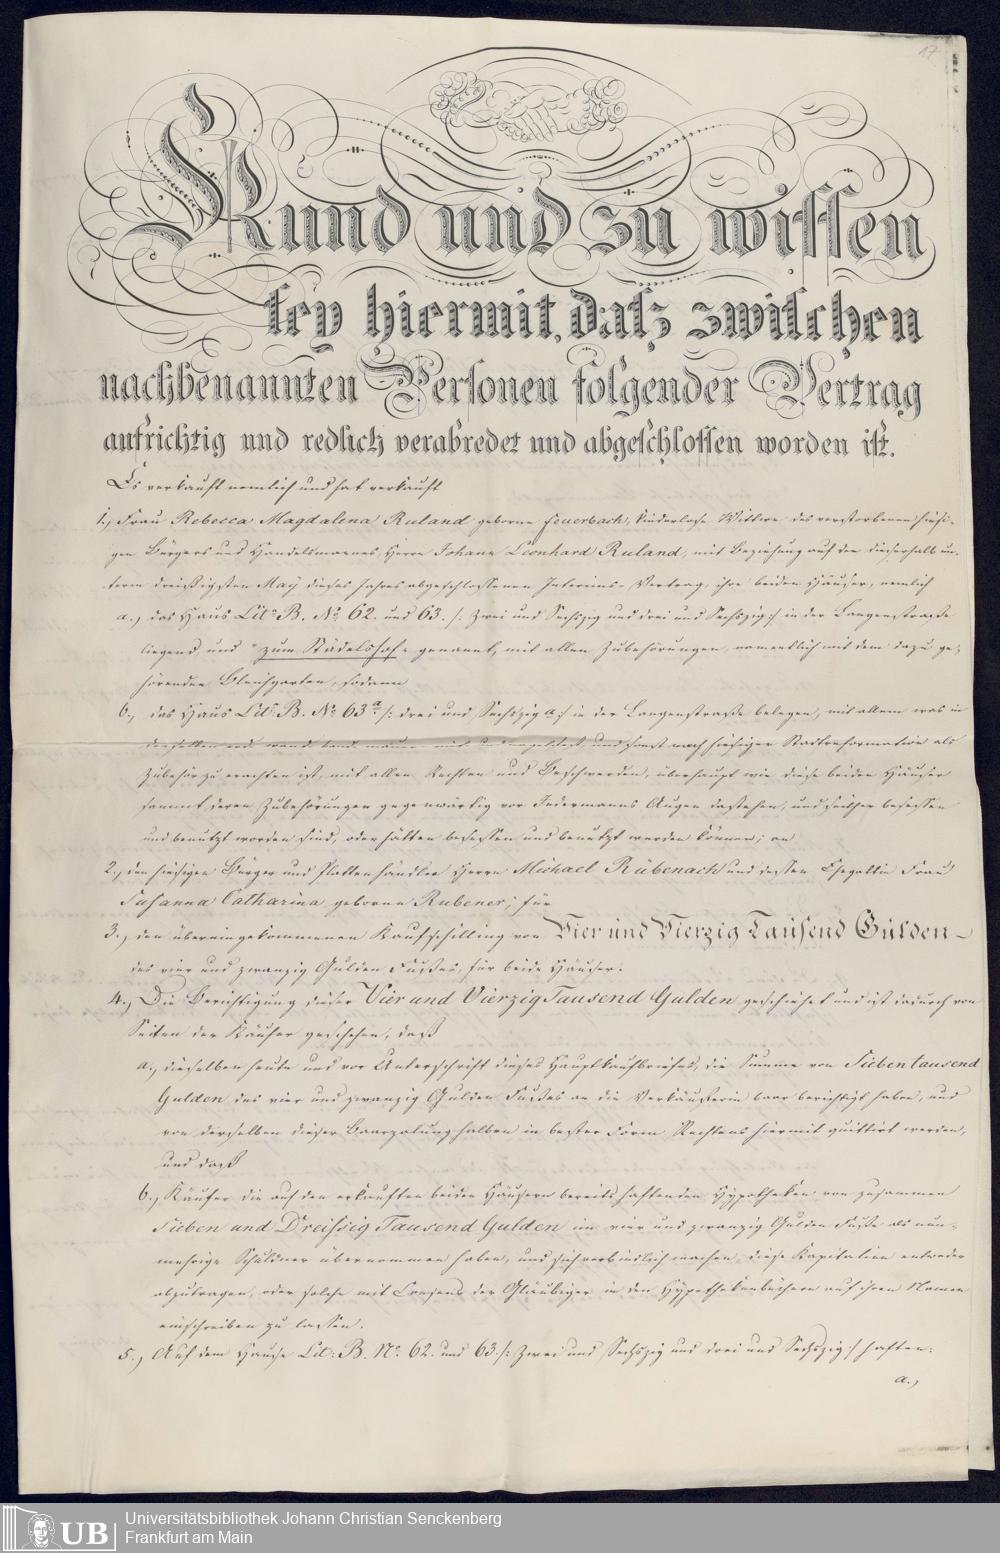 17
Kund und zu wissen
sey hiermit, daß zwischen
nachbenannten Personen folgender Vertrag
aufrichtig und redlich verabredet und abgeschlossen worden ist.
Es verkauft nemlich und hat verkauft
1., Frau Rebecca Magdalena Ruland geborne Feuerbach, kinderlose Wittwe des verstorbenen hiesi-
gen Bürgers und Handelsmannes, Herrn Johann Leonhard Ruland, mit Beziehung auf den dieserhalb un-
term dreißigsten May dieses Jahres abgeschlossenen Interims-Vertrag, ihre beiden Häuser, nemlich
a., das Haus Litᵃ B. Nº 62. und 63. /: Zwei und Sechszig und drei und Sechszig :/ in der Langenstraße
liegend, und "zum Städelshof" genannt, mit allen Zubehörungen, namentlich mit dem dazu ge-
hörenden Bleichgarten, sodann
b., das Haus Litᵃ B. Nº 63 ª /: drei und Sechszig a :/ in der Langenstraße belegen, mit allem was in
denselben erd- wand- band- mauer- niet- u. nagelfest, und sonst nach hiesiger Stadtreformation als
Zubehör zu erachten ist, mit allen Rechten und Beschwerden, überhaupt wie diese beiden Häuser
sammt deren Zubehörungen gegenwärtig vor Jedermanns Augen dastehen, und seither besessen
und benutzt worden sind, oder hätten besessen und benutzt werden können; an
2., den hiesigen Bürger und Plattenhändler Herrn Michael Rübenach und dessen Ehegattin Frau
Susanna Catharina geborne Rubener; für
3., den übereingekommenen Kaufschilling von Vier und Vierzig Tausend Gulden
des vier und zwanzig Gulden Fußes, für beide Häuser.
4., Die Berichtigung dieser Vier und Vierzig Tausend Gulden geschiehet und ist dadurch von
Seiten der Käufer geschehen, daß
a., dieselben heute und vor Unterschrift dieses Hauptkaufbriefes, die Summe von Sieben tausend
Gulden des vier und zwanzig Gulden Fußes an die Verkäuferin baar berichtigt haben, und
von derselben dieser Baarzalung halben in bester Form Rechtens hiermit quittirt werden,
und daß
b., Käufer die auf den erkauften beiden Häusern bereits haftenden Hypotheken von zusammen
Sieben und Dreißig Tausend Gulden im vier und zwanzig Gulden Fuße als nun-
mehrige Schuldner übernommen haben, und sich verbindlich machen, diese Kapitalien entweder
abzutragen, oder solche mit Consens der Gläubiger in den Hypothekenbüchern auf ihren Namen
einschreiben zu lassen.
5., Auf dem Hause Lit: B. Nº 62. und 63. /: Zwei und Sechszig und drei und Sechszig :/ haften:
a.,
UB
Universitätsbibliothek Johann Christian Senckenberg
Frankfurt am Main